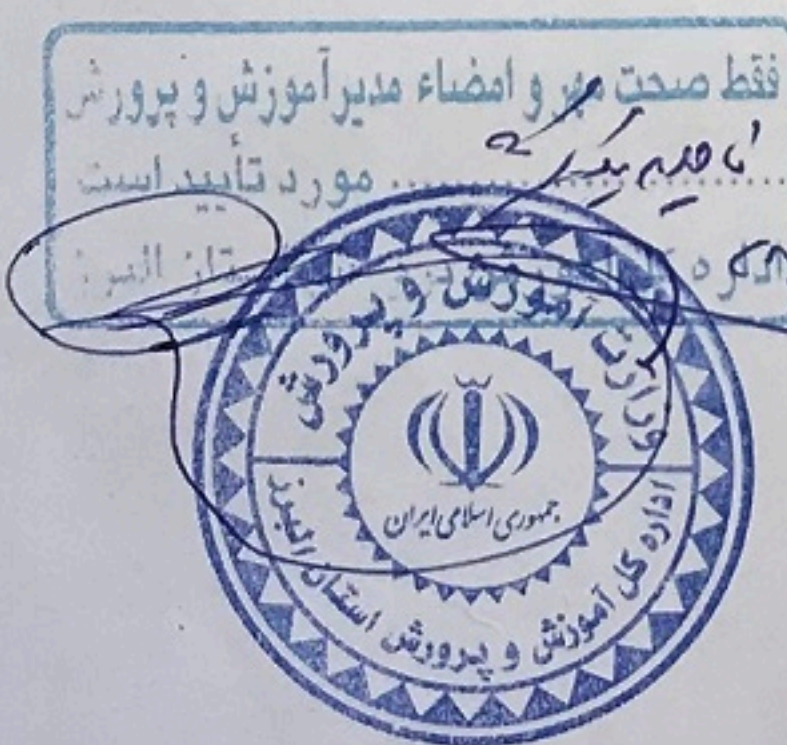 فقط صحت مهر و امضاء مدیر آموزش و پرورش
ناحیه یک ........ مورد تأیید است
اداره کل آموزش و پرورش استان البرز
وزارت آموزش و پرورش
جمهوری اسلامی ایران
اداره کل آموزش و پرورش استان البرز